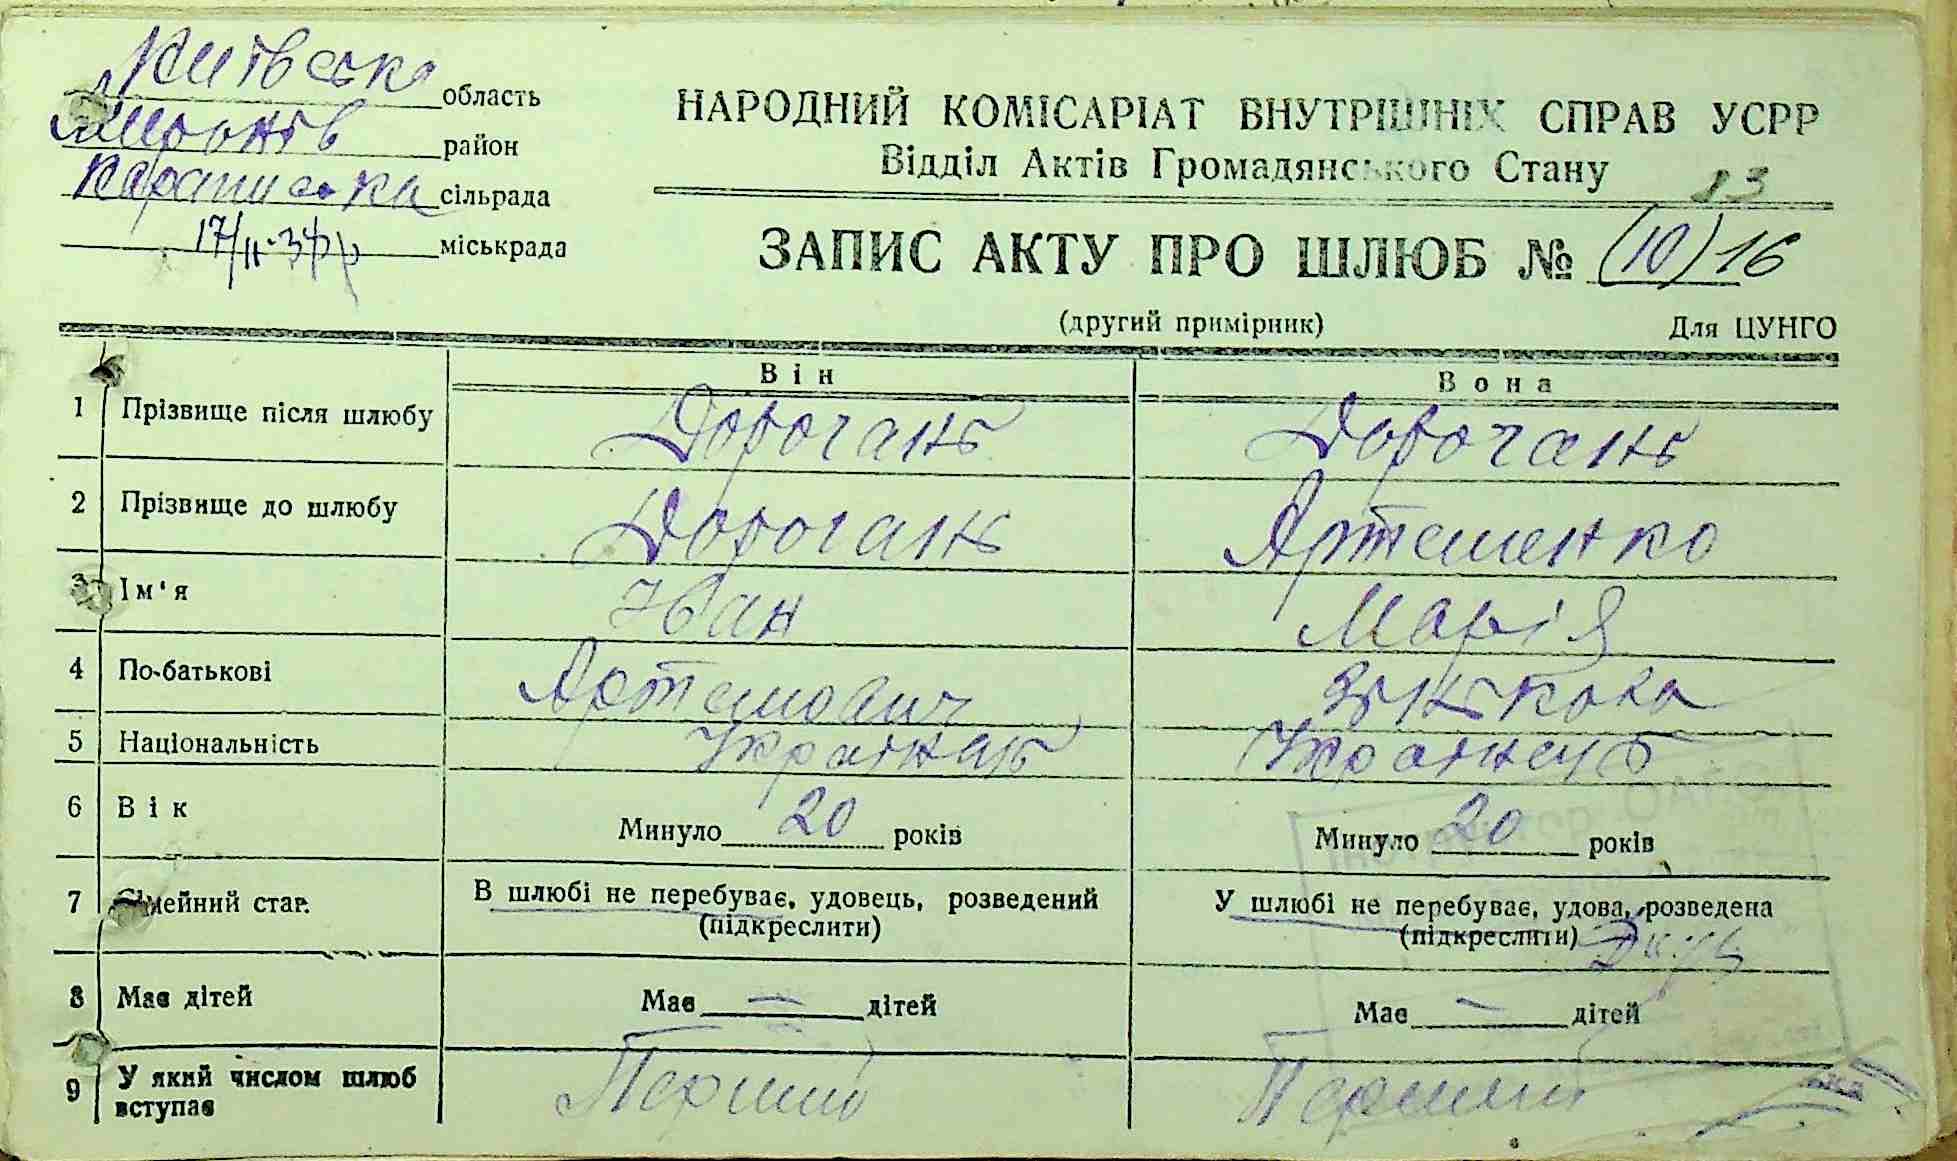 Київська область
Миронів район
Караписька сільрада
17/II-37р міськрада
НАРОДНИЙ КОМІСАРІАТ ВНУТРІШНІХ СПРАВ УСРР
Відділ Актів Громадянського Стану
13
ЗАПИС АКТУ ПРО ШЛЮБ № (10) 16
(другий примірник) Для ЦУНГО
Він Вона
1 Прізвище після шлюбу Дорогань Дорогань
2 Прізвище до шлюбу Дорогань Артеменко
3 Ім'я Іван Марія
4 По-батькові Артемович
5 Національність Українець Українець
6 Вік Минуло 20 років Минуло 20 років
7 Сімейний стан. В шлюбі не перебуває, удовець, розведений У шлюбі не перебуває, удова, розведена
(підкреслити) (підкреслити)
8 Має дітей Має — дітей Має — дітей
9 У який числом шлюб Перший Перший
вступає